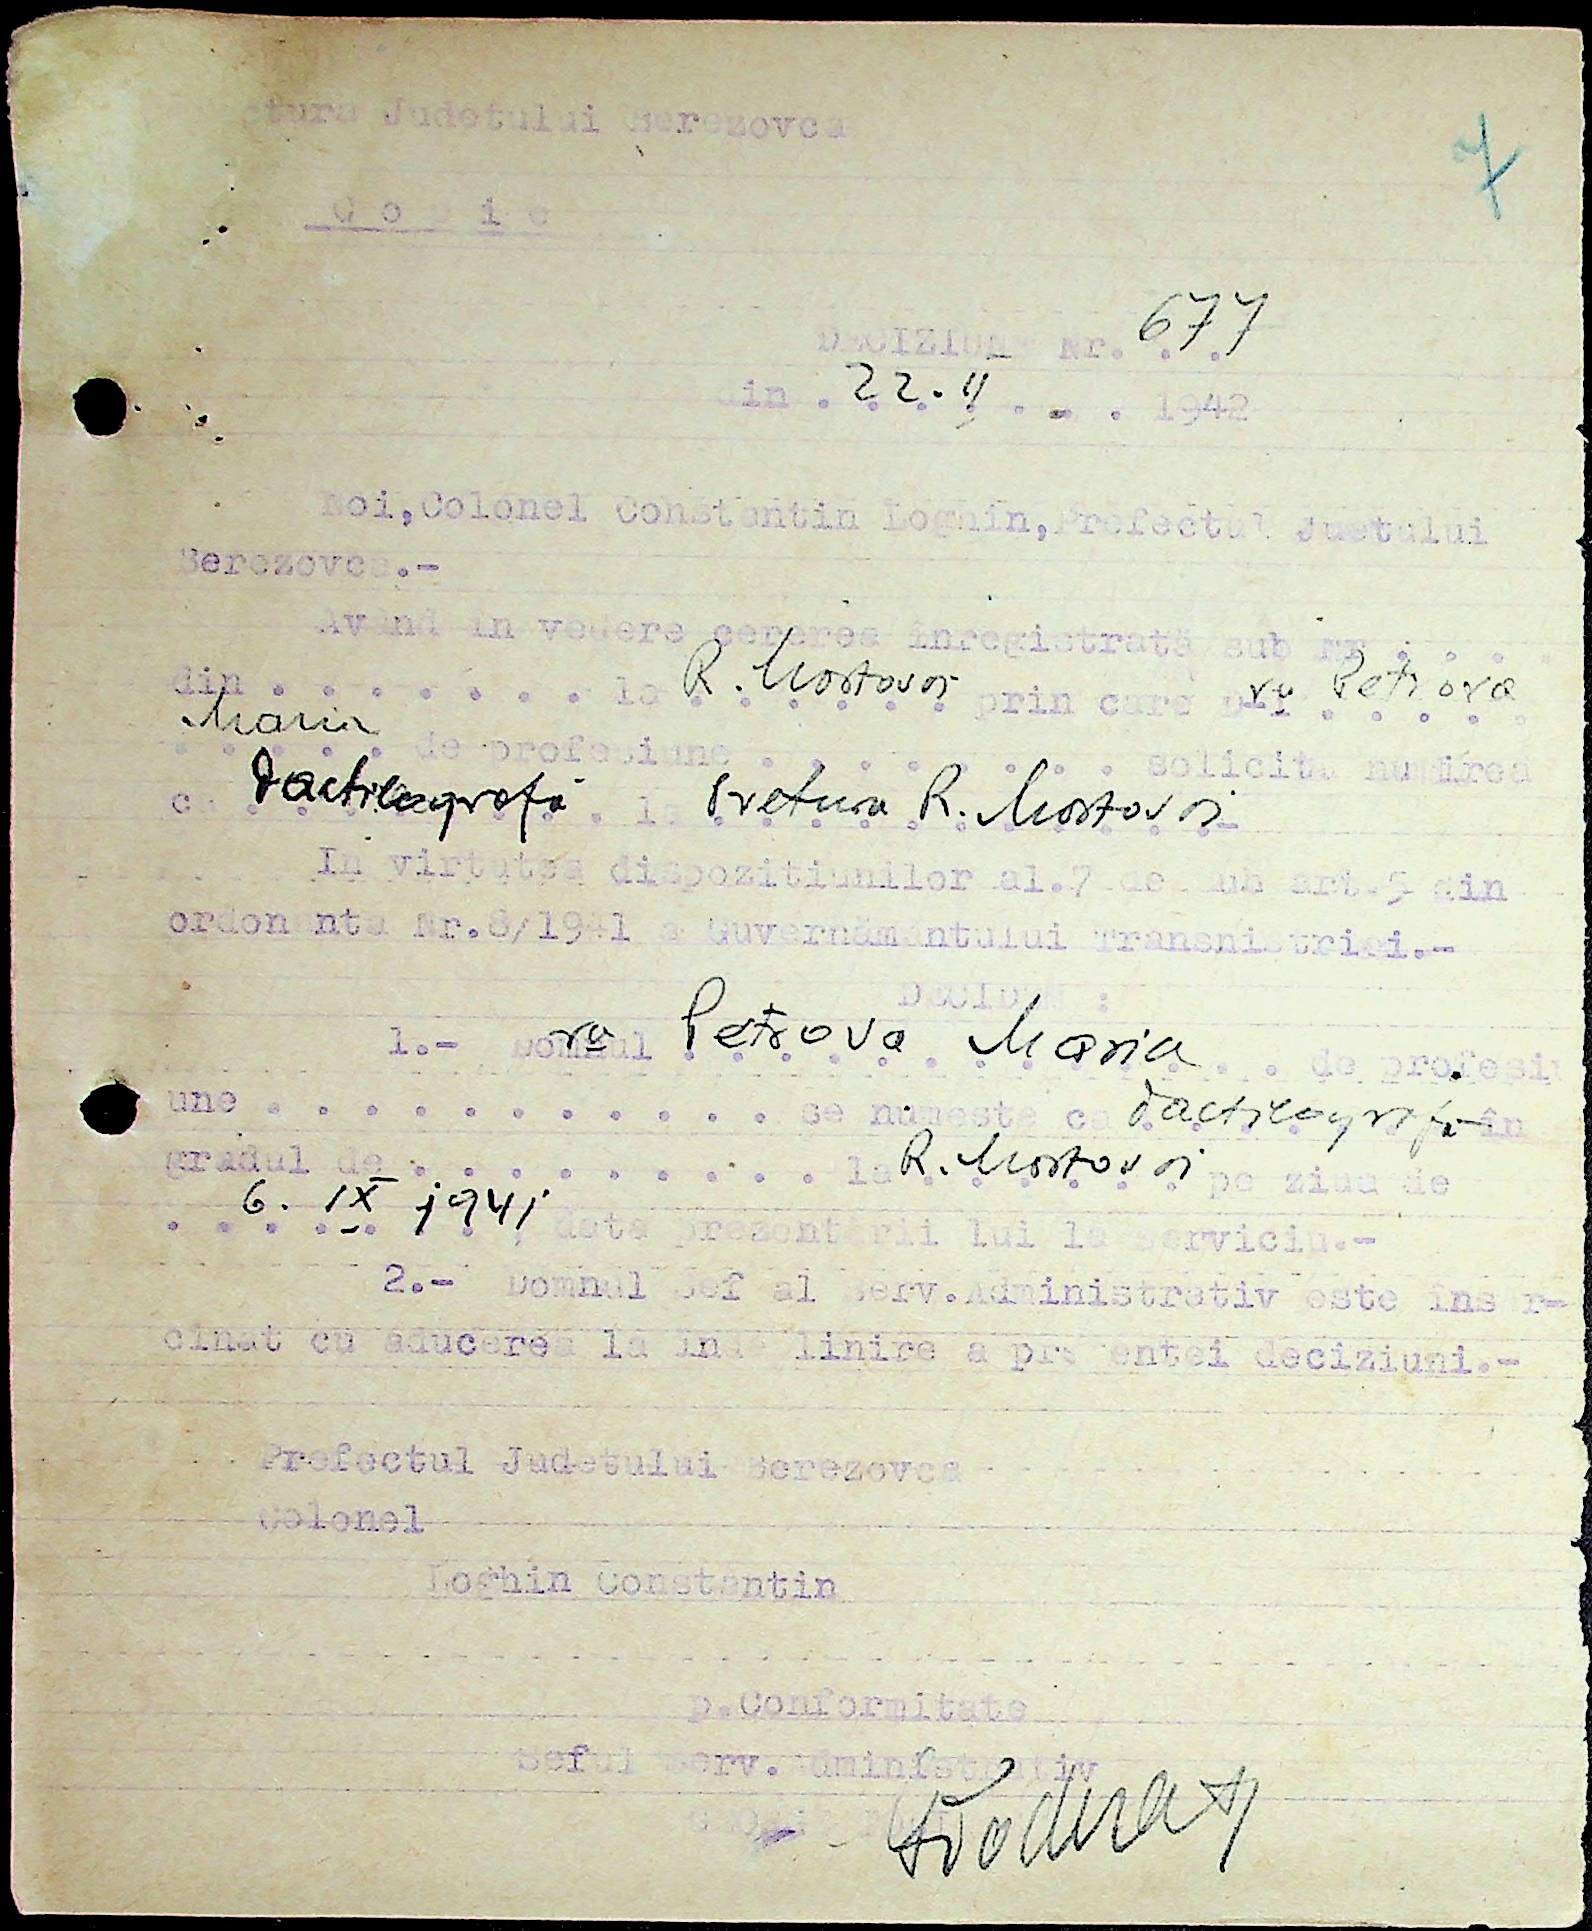 7
ctura Judetului Berezovca
Copie
DECIZIUNE Nr. 677
din . 22.II . . 1942
Noi, Colonel Constantin Loghin, Prefectul Juetului
Berezovca.-
Avind in vedere cererea înregistrată sub nr . . . .
din . . . . . . . . la R. Mostovoi prin care D-l ra Petrova
Maria de profesiune . . . . . . . . . solicita numirea
ca Dactilografă la Pretura R. Mostovoi
In virtutea dispozitiunilor al.7 de sub art.5 din
ordonanta Nr.8/1941 a Guvernămantului Transnistriei.-
DECIDEM :
1.- Domnul ra Petrova Maria . . de profesi
une . . . . . . . . . . . . se numeste ca dactilografă în
gradul de . . . . . . . . . . la R. Mostovoi pe ziua de
6. IX 1941, data prezentarii lui la serviciu.-
2.- Domnul Sef al Serv.Administrativ este insar-
cinat cu aducerea la indeplinire a prezentei deciziuni.-
Prefectul Judetului Berezovca
Colonel
Loghin Constantin
p.Conformitate
Seful Serv. Administrativ